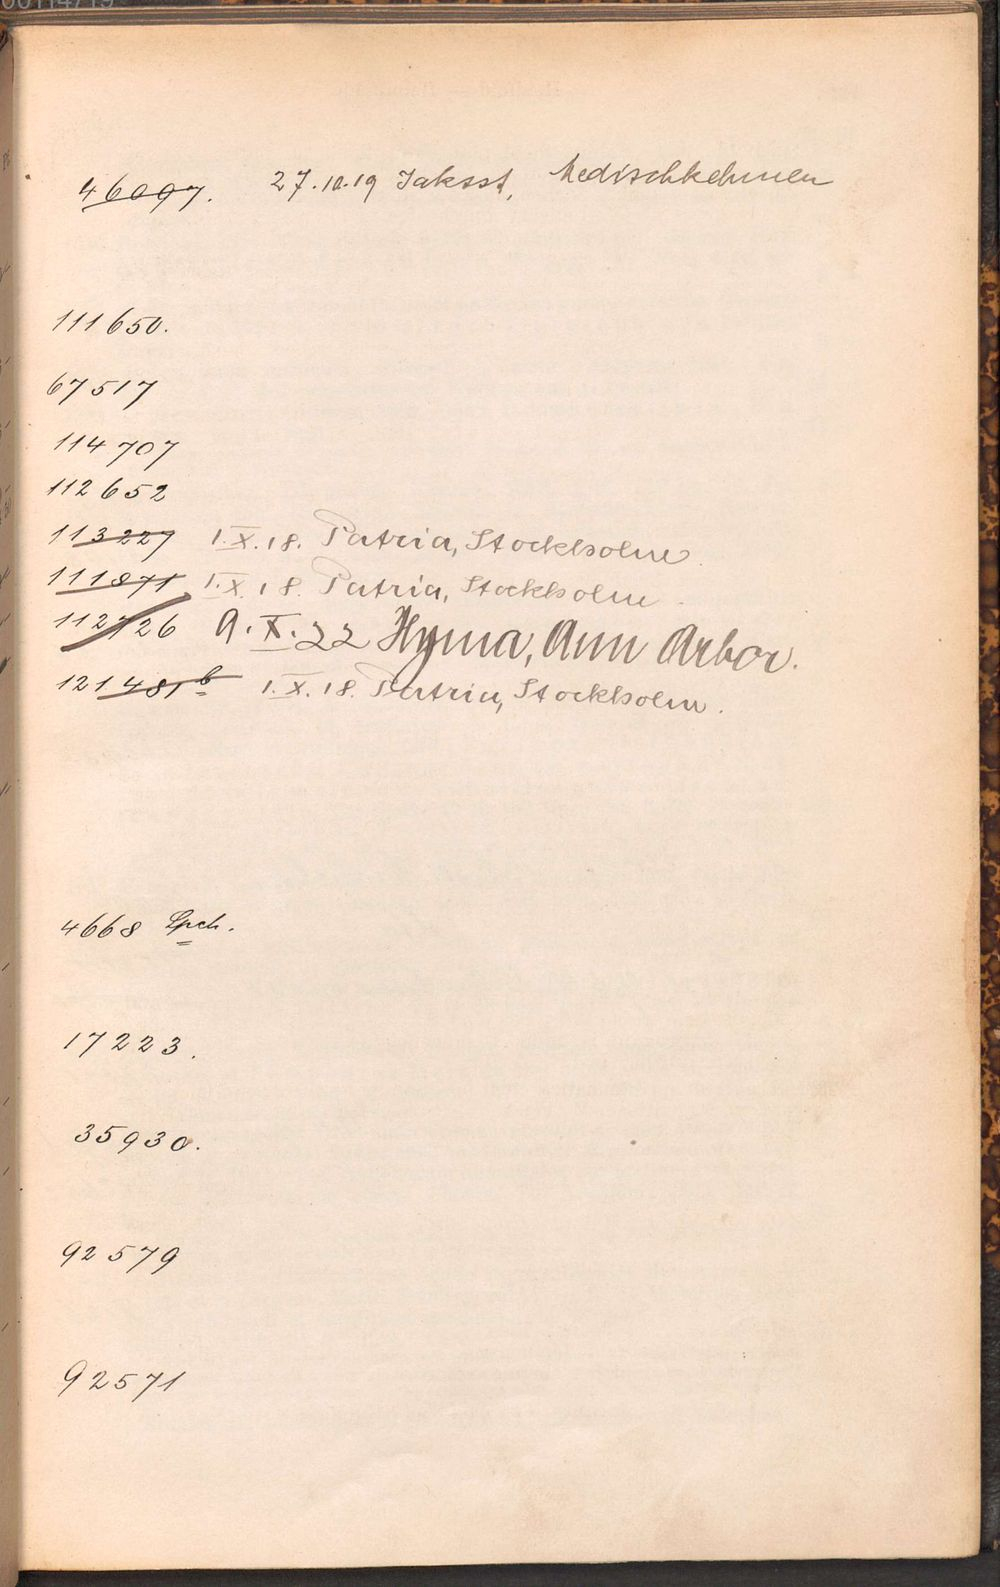 46097. 27.10.19 Jaksst, Medischkehmen
111650.
67517
114707
112652
113227 1.X.18. Patria, Stockholm
111871 1.X.18. Patria, Stockholm.
112726 9.X.22 Hyma, Ann Arbor.
121481b 1.X.18. Patria, Stockholm.
4668 Lpch.
17223.
35930.
92579
92571